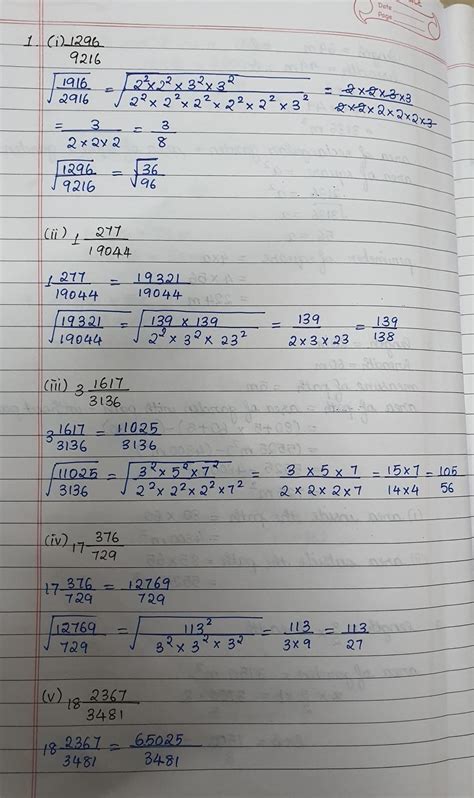 Date
Page
1. (i) 1296/9216
√(1916/2916) = √((2² × 2² × 3² × 3²)/(2² × 2² × 2² × 2² × 2² × 3²)) = (2 × 2 × 3 × 3)/(2 × 2 × 2 × 2 × 2 × 3)
= 3/(2 × 2 × 2) = 3/8
√(1296/9216) = √(36/96)
(ii) 1 277/19044
1 277/19044 = 19321/19044
√(19321/19044) = √((139 × 139)/(2² × 3² × 23²)) = 139/(2 × 3 × 23) = 139/138
(iii) 3 1617/3136
3 1617/3136 = 11025/3136
√(11025/3136) = √((3² × 5² × 7²)/(2² × 2² × 2² × 7²)) = (3 × 5 × 7)/(2 × 2 × 2 × 7) = (15 × 7)/(14 × 4) = 105/56
(iv) 17 376/729
17 376/729 = 12769/729
√(12769/729) = √(113²/(3² × 3² × 3²)) = 113/(3 × 9) = 113/27
(v) 18 2367/3481
18 2367/3481 = 65025/3481